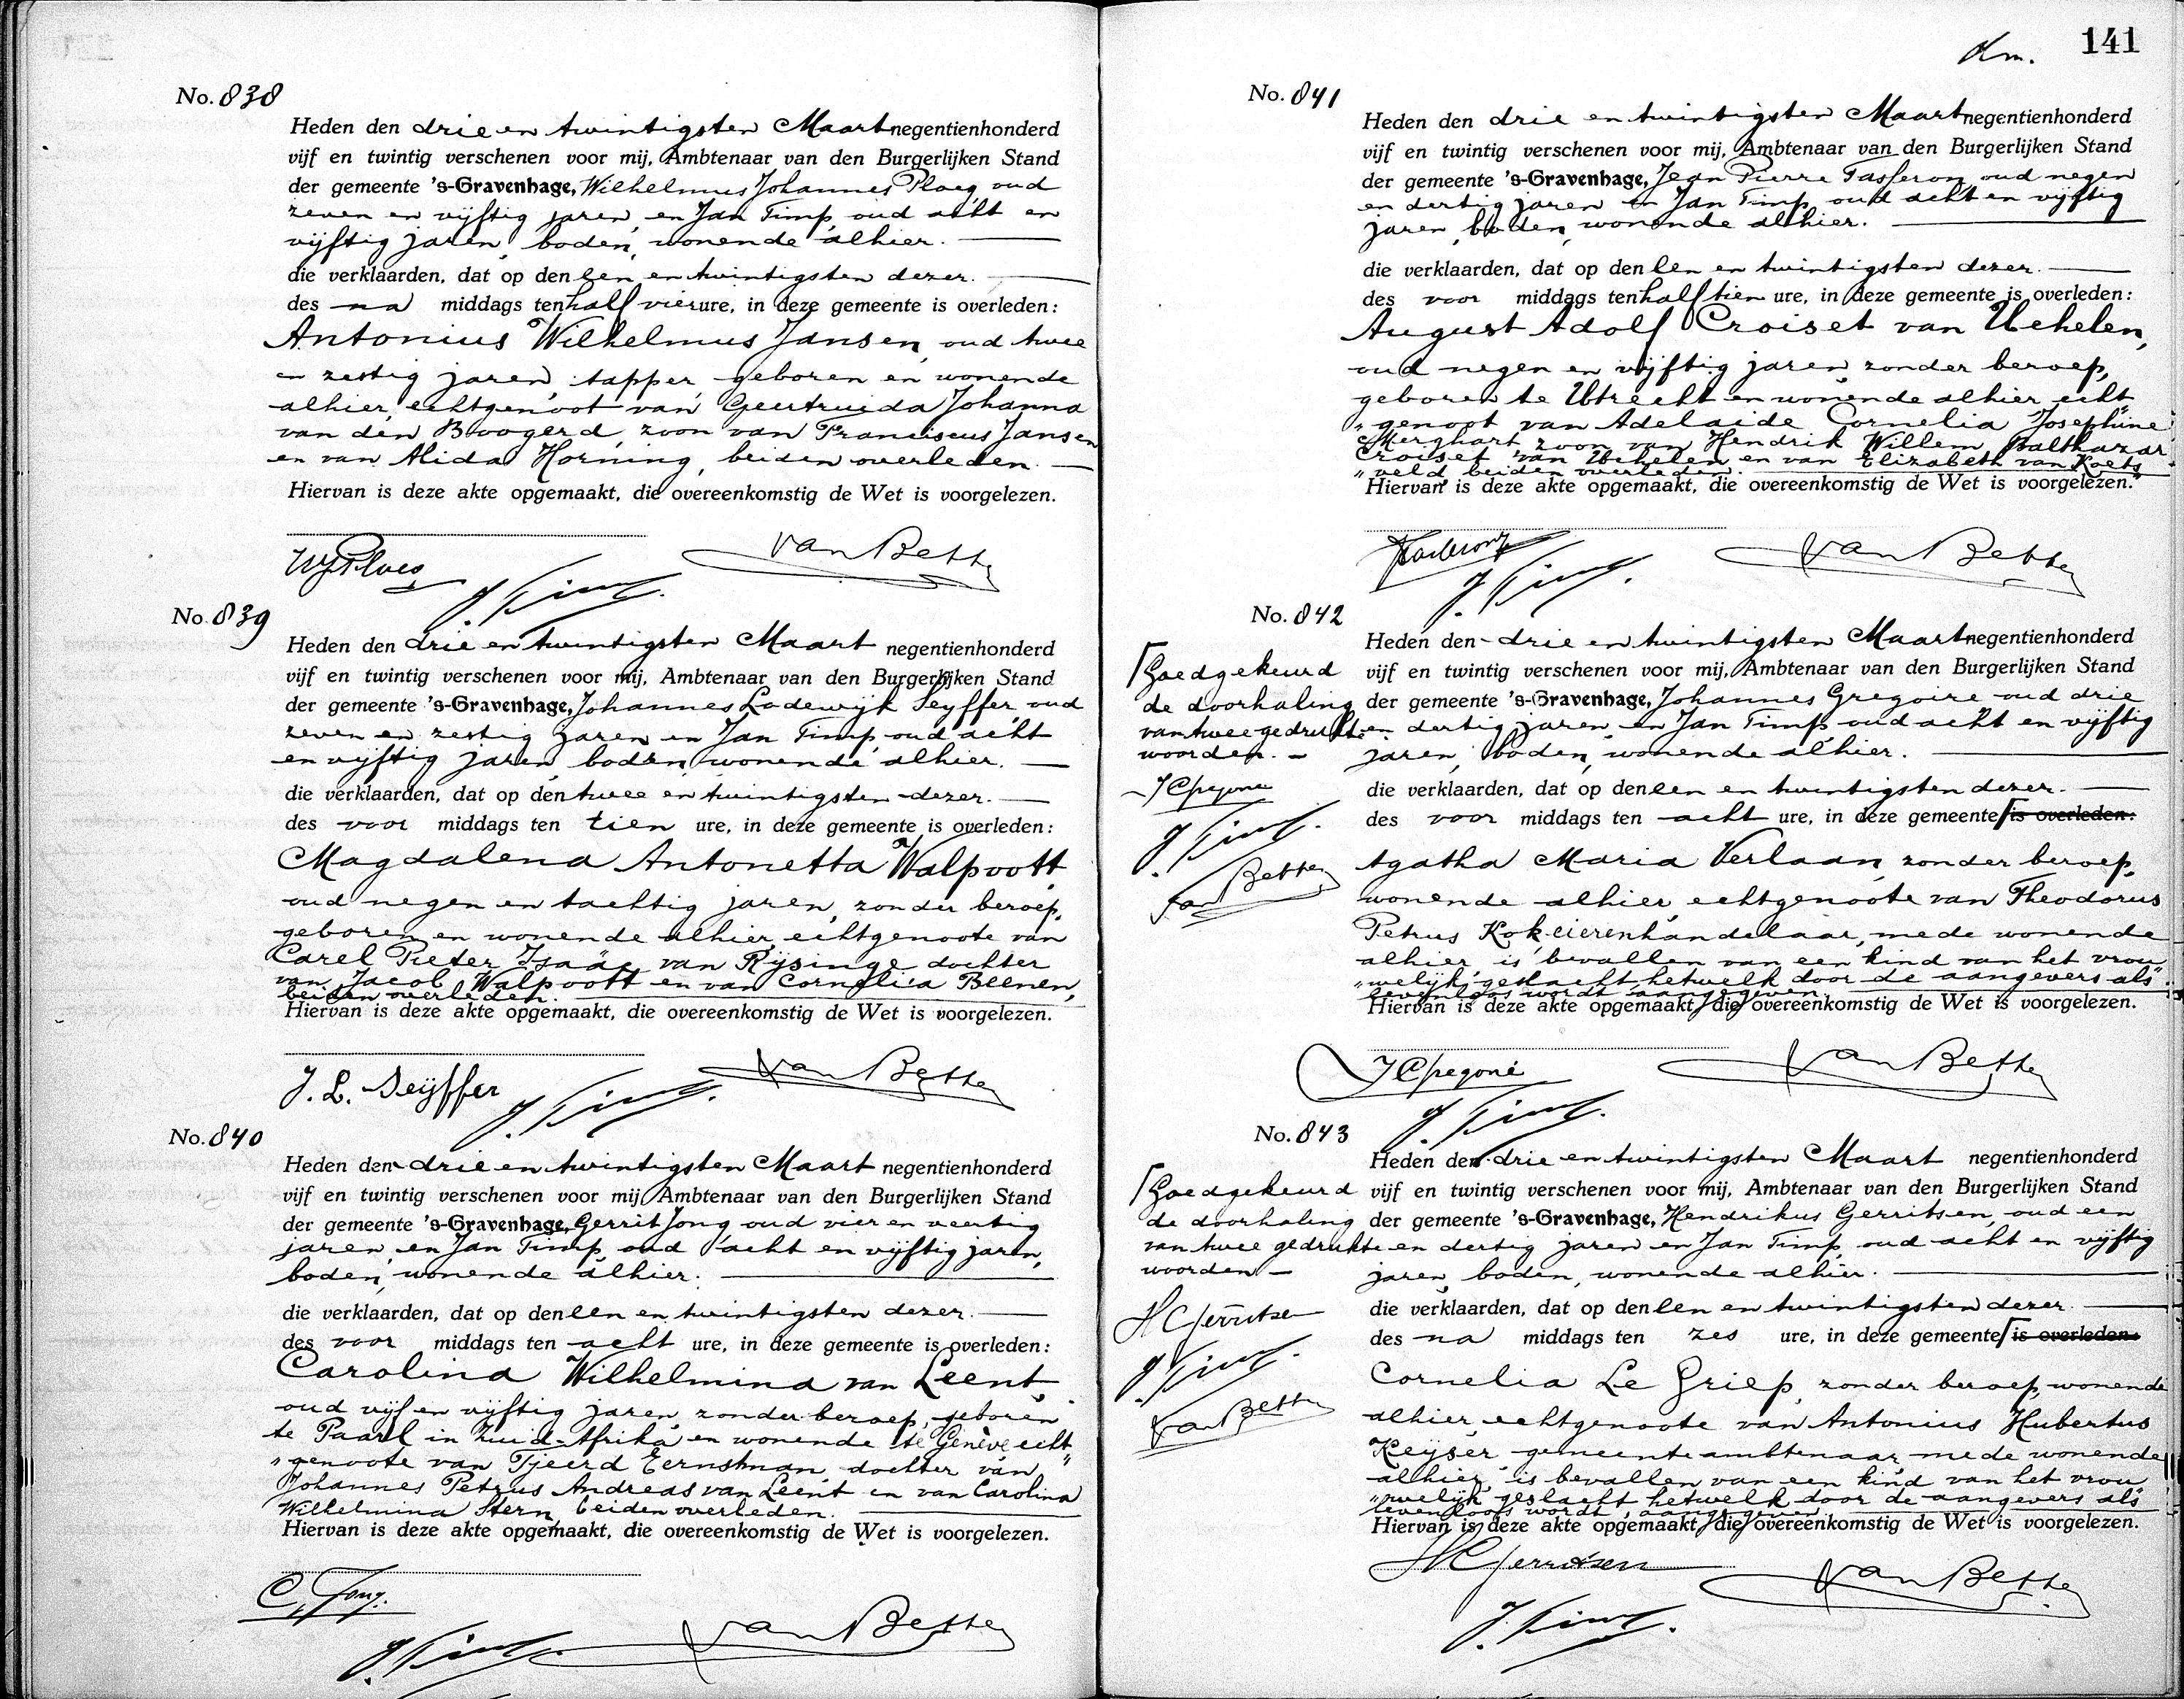 No. 838
Heden den drie en twintigsten Maart negentienhonderd
vijf en twintig verschenen voor mij, Ambtenaar van den Burgerlijken Stand
der gemeente 's-Gravenhage, Wilhelmus Johannes Ploeg, oud
zeven en vijftig jaren, en Jan Timp, oud acht en
vijftig jaren, boden, wonende alhier.
die verklaarden, dat op den een en twintigsten dezer.
des na middags ten half vier ure, in deze gemeente is overleden:
Antonius Wilhelmus Jansen, oud twee
en zestig jaren, tapper, geboren en wonende
alhier, echtgenoot van Geertruida Johanna
van den Boogerd, zoon van Franciscus Jansen
en van Alida Horning, beiden overleden.
Hiervan is deze akte opgemaakt, die overeenkomstig de Wet is voorgelezen.
WJPloeg
J. Timp.
van Bette
No. 839
Heden den drie en twintigsten Maart negentienhonderd
vijf en twintig verschenen voor mij, Ambtenaar van den Burgerlijken Stand
der gemeente 's-Gravenhage, Johannes Lodewijk Seyffer, oud
zeven en zestig jaren en Jan Timp, oud acht
en vijftig jaren, boden, wonende alhier.
die verklaarden, dat op den twee en twintigsten dezer.
des voor middags ten tien ure, in deze gemeente is overleden:
Magdalena Antonetta Walpoott,
oud negen en tachtig jaren, zonder beroep,
geboren en wonende alhier, echtgenoote van
Carel Pieter Isaäc van Rijsinge, dochter
van Jacob Walpoott en van Cornelia Beenen,
beiden overleden.
Hiervan is deze akte opgemaakt, die overeenkomstig de Wet is voorgelezen.
J. L. Seijffer
J. Timp.
van Bette
No. 840
Heden den drie en twintigsten Maart negentienhonderd
vijf en twintig verschenen voor mij, Ambtenaar van den Burgerlijken Stand
der gemeente 's-Gravenhage, Gerrit Jong, oud vier en veertig
jaren, en Jan Timp, oud acht en vijftig jaren,
boden, wonende alhier.
die verklaarden, dat op den een en twintigsten dezer.
des voor middags ten acht ure, in deze gemeente is overleden:
Carolina Wilhelmina van Leent,
oud vijf en vijftig jaren, zonder beroep, geboren
te Paarl in Zuid-Afrika en wonende te Genève, echt„
„genoote van Tjeerd Eernstman, dochter van
Johannes Petrus Andreas van Leent en van Carolina
Wilhelmina Stern, beiden overleden.
Hiervan is deze akte opgemaakt, die overeenkomstig de Wet is voorgelezen.
G. Jong.
J. Timp.
van Bette
141
No. 841
Heden den drie en twintigsten Maart negentienhonderd
vijf en twintig verschenen voor mij, Ambtenaar van den Burgerlijken Stand
der gemeente 's-Gravenhage, Jean Pierre Tasseron, oud negen
en dertig jaren en Jan Timp, oud acht en vijftig
jaren, boden, wonende alhier.
die verklaarden, dat op den een en twintigsten dezer.
des voor middags ten half tien ure, in deze gemeente is overleden:
August Adolf Croiset van Uchelen,
oud negen en vijftig jaren, zonder beroep,
geboren te Utrecht en wonende alhier, echt„
„genoot van Adelaide Cornelia Josephine
Merghart, zoon van Hendrik Willem Balthazar
Croiset van Uchelen en van Elizabeth van Koets„
„veld, beiden overleden.
Hiervan is deze akte opgemaakt, die overeenkomstig de Wet is voorgelezen.
Tasseron
J. Timp.
van Bette
No. 842
Heden den drie en twintigsten Maart negentienhonderd
vijf en twintig verschenen voor mij, Ambtenaar van den Burgerlijken Stand
der gemeente 's-Gravenhage, Johannes Gregoire oud drie
en dertig jaren, en Jan Timp, oud acht en vijftig
jaren, boden, wonende alhier.
die verklaarden, dat op den een en twintigsten dezer.
des voor middags ten acht ure, in deze gemeente is overleden:
Agatha Maria Verlaan, zonder beroep,
wonende alhier, echtgenoote van Theodorus
Petrus Kok, eierenhandelaar, mede wonende
alhier, is bevallen van een kind van het vrou„
„welijk geslacht, hetwelk door de aangevers als
levenloos wordt aangegeven.
Hiervan is deze akte opgemaakt, die overeenkomstig de Wet is voorgelezen.
Goedgekeurd
de doorhaling
van twee gedrukte
woorden.
J. Timp.
van Bette
J. Timp.
van Bette
No. 843
Heden den drie en twintigsten Maart negentienhonderd
vijf en twintig verschenen voor mij, Ambtenaar van den Burgerlijken Stand
der gemeente 's-Gravenhage, Hendrikus Gerritsen, oud een
en dertig jaren en Jan Timp, oud acht en vijftig
jaren, boden, wonende alhier.
die verklaarden, dat op den een en twintigsten dezer.
des na middags ten zes ure, in deze gemeente is overleden:
Cornelia Le Griep, zonder beroep, wonende
alhier, echtgenoote van Antonius Hubertus
Keijser, gemeenteambtenaar, mede wonende
alhier, is bevallen van een kind van het vrou„
„welijk geslacht, hetwelk door de aangevers als
levenloos wordt aangegeven.
Hiervan is deze akte opgemaakt, die overeenkomstig de Wet is voorgelezen.
Goedgekeurd
de doorhaling
van twee gedrukte
woorden.
HGerritsen
J. Timp.
van Bette
HGerritsen
J. Timp.
van Bette